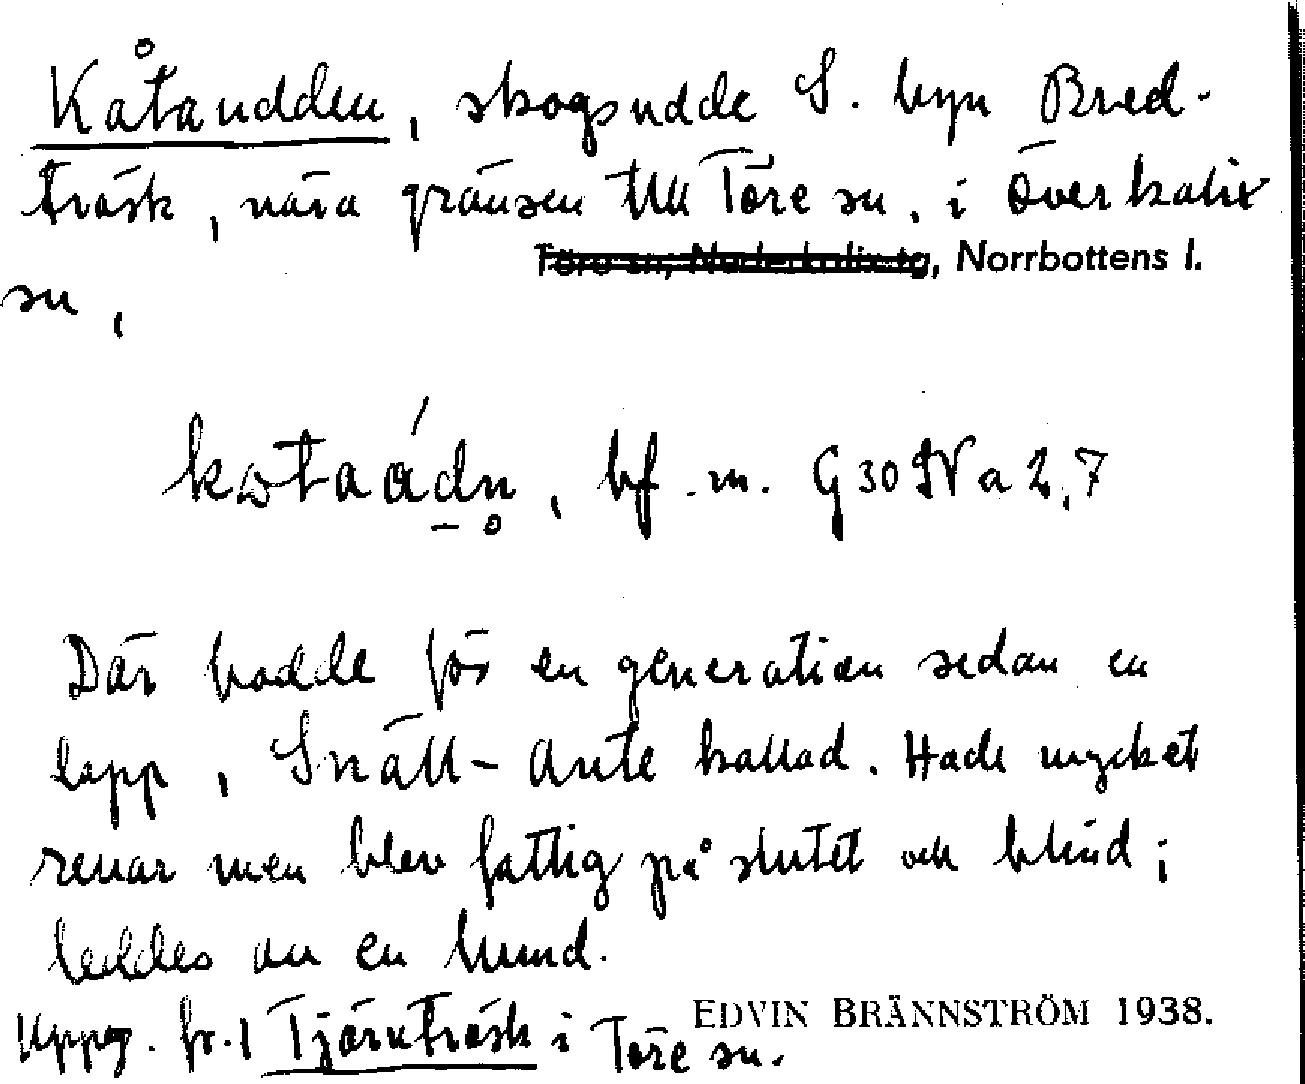 Kåtaudden, skogsudde S. byn Bred-
träsk, nära gränsen till Töre sn. i Överkalix
Töre sn, Nederkalix tg, Norrbottens l.
sn,
bf. m. G 30 IV a 2,7
Där bodde för en generation sedan en
lapp, Snäll-Ante kallad. Hade mycket
renar men blev fattig på slutet och blind;
leddes av en hund.
Uppg. fr. Tjärnträsk i Töre sn.
EDVIN BRÄNNSTRÖM 1938.